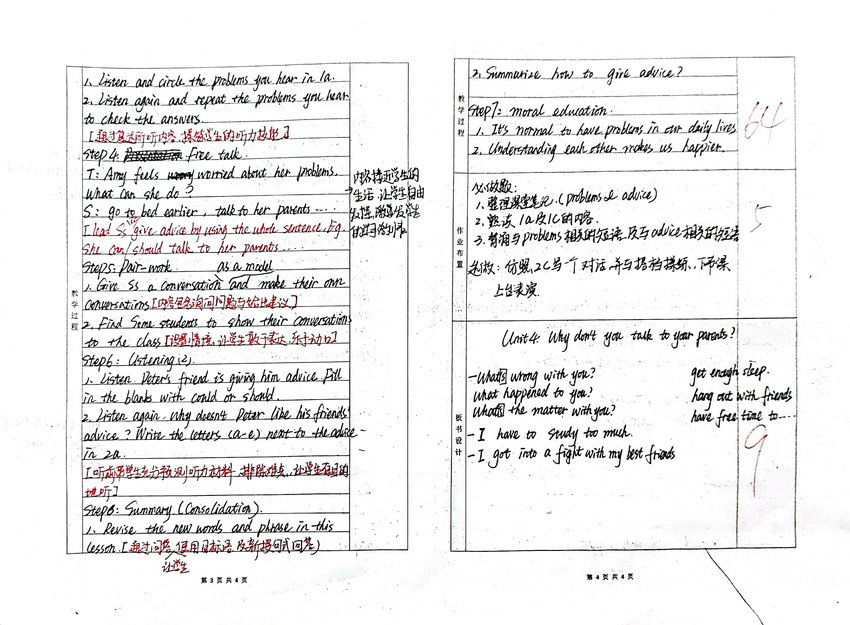 1. Listen and circle the problems you hear in 1a.
2. Listen again and repeat the problems you hear
to check the answers.
[通过复述所听内容,操练学生的听力技能]
Step 4: Free talk.
T: Amy feels worried about her problems.
What can she do?
S: go to bed earlier, talk to her parents ......
[lead Ss give advice by using the whole sentence. Eg.
She can/should talk to her parents....
内容接近学生的
生活,让学生自由
Step5: Pair-work. as a model
1. Give Ss a conversation and make their own
conversations [内容包含询问问题与给出建议]
2. Find some students to show their conversations
to the class [设置情境,让学生敢于表达,乐于动口]
Step6: Listening (2).
1. Listen. Peter's friend is giving him advice. Fill
in the blanks with could or should.
2. Listen again. Why doesn't Peter like his friends'
advice? Write the letters (a-e) next to the advice
in 2a.
[听前带学生充分预测听力材料,排除难点,让学生有目的
地听]
Step8: Summary (Consolidation).
1. Revise the new words and phrase in this
lesson. [通过问答,使用目标语及新授句式回答)
让学生
教学过程
第 3 页 共 4 页
教学过程
2. Summarize how to give advice?
Step7: moral education.
1. It's normal to have problems in our daily lives
2. Understanding each other makes us happier.
64
作业布置
必做题:
1. 整理课堂笔记.(problems & advice)
2. 熟读 1a及1c的内容.
3. 背诵与problems相关的短语及与advice相关的短语
选做: 仿照2c写一个对话,并与搭档操练,下节课
上台表演.
5
板书设计
Unit 4: Why don't you talk to your parents?
- What's wrong with you?
What happened to you?
What's the matter with you?
- I have to study too much.
- I got into a fight with my best friends
get enough sleep.
hang out with friends
have free time to....
9
第 4 页 共 4 页